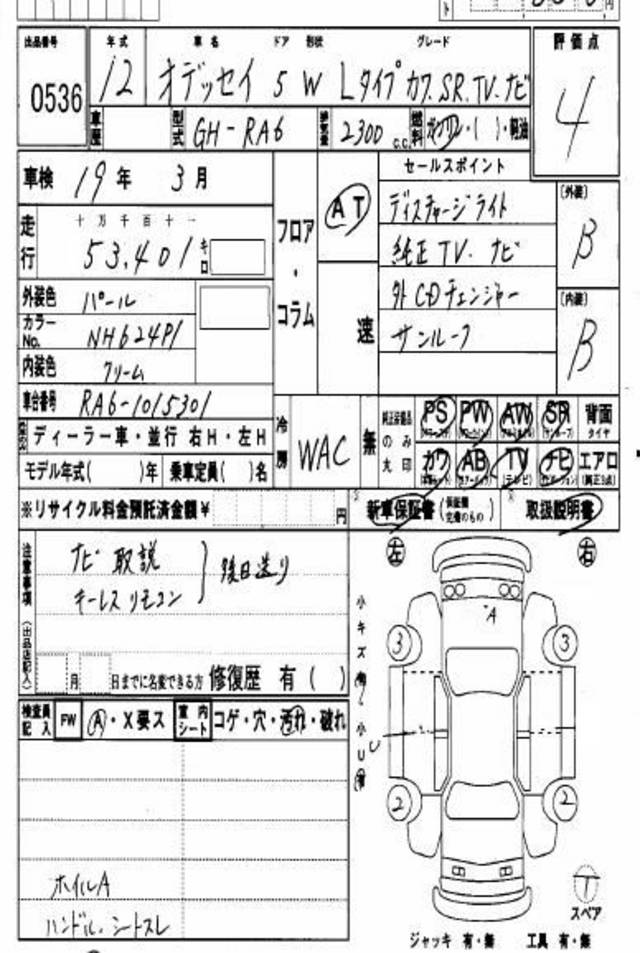 出品番号 年式 車名 ドア 形状 グレード 評価点
0536 12 オデッセイ 5 W Lタイプ カワ.SR.TV.ナビ 4
車歴 型式 GH-RA6 排気量 2300 c.c. 燃料 ガソリン・( )・軽油
車検 19年 3月 セールスポイント
走行 十万千百十一 53,401 キロ
フロア・コラム AT 速
ディスチャージライト
純正TV.ナビ
外CDチェンジャー
サンルーフ
〔外装〕 B
〔内装〕 B
外装色 パール
カラーNo. NH624P1
内装色 クリーム
車台番号 RA6-1015301
ディーラー車・並行 右H・左H
モデル年式( )年 乗車定員( )名
冷房 WAC 無
純正装備品のみ丸印 PS PW AW SR 背面タイヤ
カワ AB TV ナビ エアロ
※リサイクル料金預託済金額¥ 円
新車保証書 (保証継続交換のもの) 取扱説明書
注意事項(出品店記入)
ナビ取説
キーレスリモコン
後日送り
月 日までに名変できる方 修復歴 有( )
検査員記入 FW A・X要ス 室内シート コゲ・穴・汚れ・破れ
ホイルA
ハンドル.シートスレ
左 右
小キズ
小U
A
3 3
U
2 2
T
スペア
ジャッキ 有・無 工具 有・無